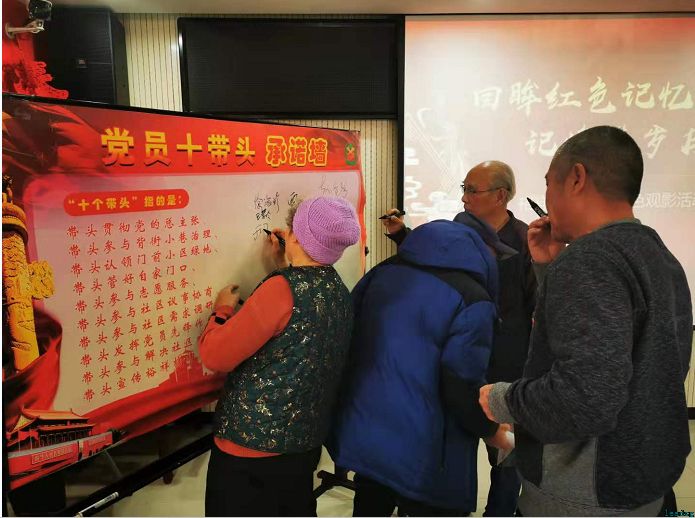 党员十带头 承诺墙
“十个带头”指的是：
带头贯彻党的总主张、
带头参与背街小巷治理、
带头认领门前小区绿地、
带头管好自家门口、
带头参与志愿服务、
带头参与社区议事协商
带头参与社区需求调研
带头发挥党员先锋作
带头参与解决社区
带头宣传裕祥
回眸红色记忆
记
岁
色观影活动